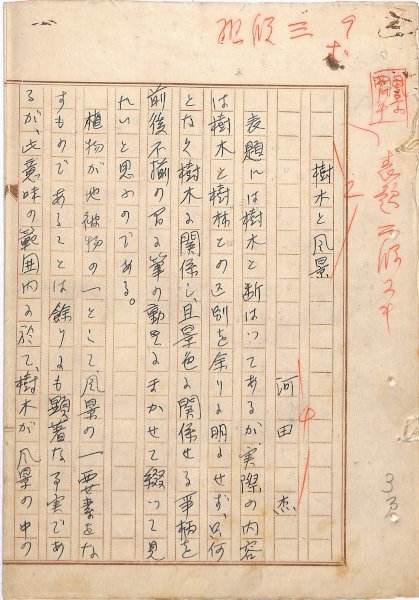 9ポ 三段組
表題 二段ヌキ
樹木と風景
河田杰
表題には樹木と断はつてあるが、実際の内容
は樹木と樹林との区別を余りに明にせず、只何
となく樹木に関係し、且景色に関係せる事柄を
前後不揃の筆の動くにまかせて綴つて見
たいと思ふのである。
植物が地被物の一として風景の一要素をな
すものであることは余りにも顕著な事実であ
るが、此意味の範囲内に於て、樹木が風景の中の